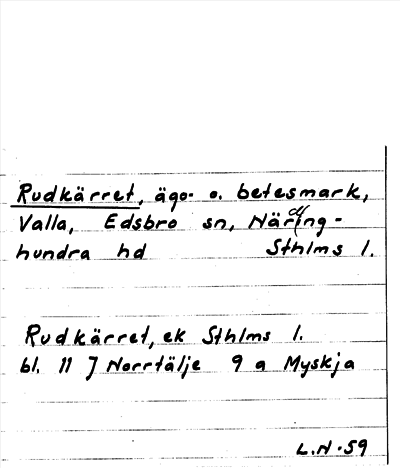 Rudkärret, ägo- o. betesmark,
Valla, Edsbro sn, Närding-
hundra hd Sthlms l.
Rudkärret, ek Sthlms l.
bl. 11 J Norrtälje 9 a Myskja
L.N. 59